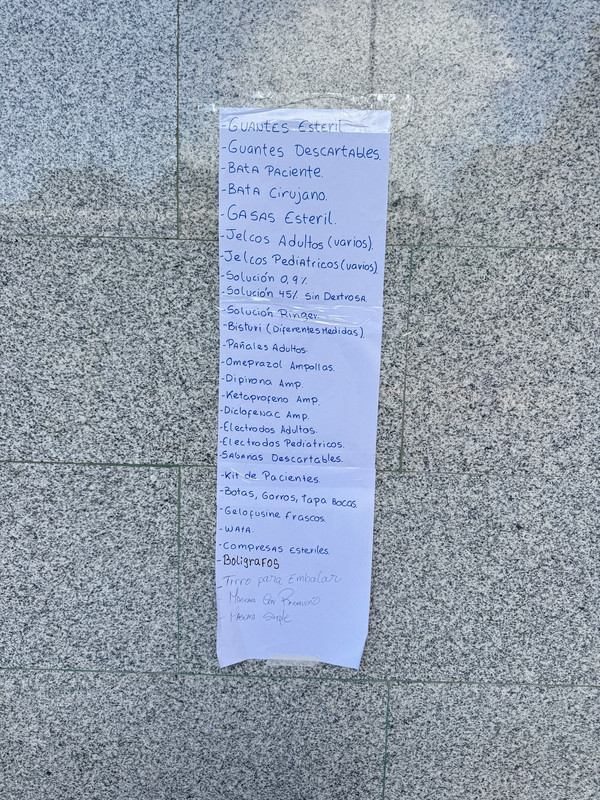 -GUANTES Esteril
-Guantes Descartables.
-BATA Paciente.
-BATA Cirujano.
-GASAS Esteril.
-Jelcos Adultos (varios).
-Jelcos Pediatricos (varios)
-Solución 0,9%
-Solución 45% sin Dextrosa
-Solución Ringer
-Bisturi (Diferentes Medidas).
-Pañales Adultos.
-Omeprazol Ampollas.
-Dipirona Amp.
-Ketaprofeno Amp.
-Diclofenac Amp.
-Electrodos Adultos.
-Electrodos Pediatricos.
-Sabanas Descartables.
-Kit de Pacientes.
-Botas, Gorros, Tapa Bocas.
-Gelofusine frascos.
-WATA.
-Compresas Esteriles.
-Boligrafos
-Tirro para Embalar
-Mascara Con
-Mascara Simple